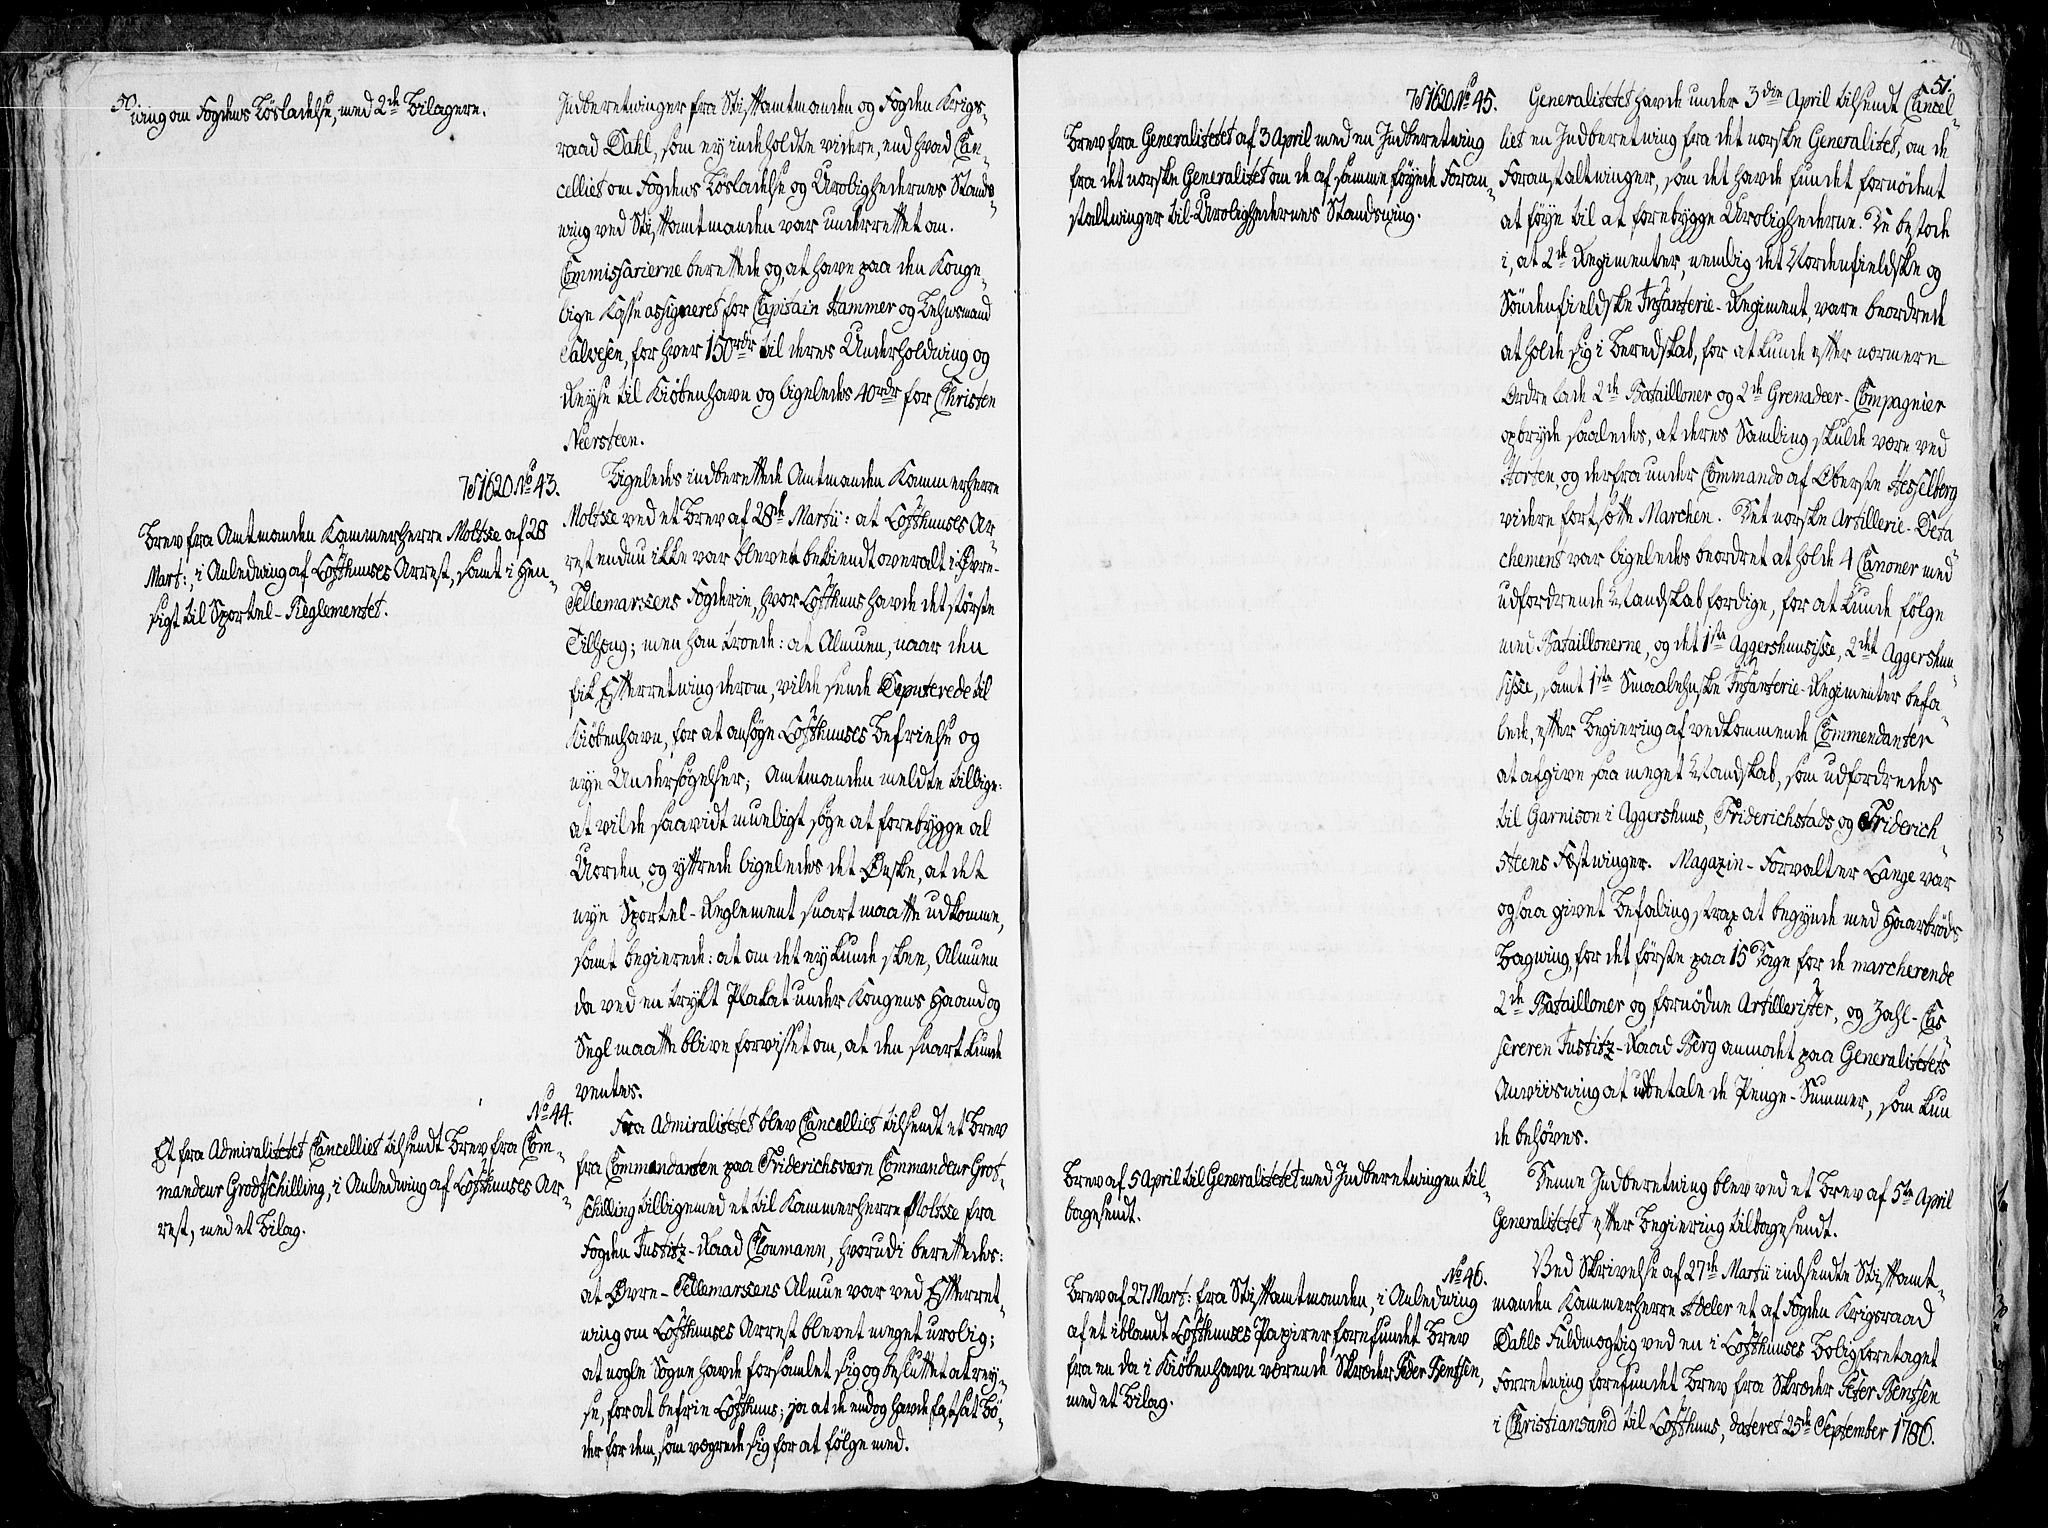 50.
ning om Fogdens Løsladelse, med 2de Bilagere.
Indberetninger fra Stiftamtmanden og Fogden Krigs-
raad Dahl, som ey indeholdte videre, end hvad Can-
celliet om Fogdens Løsladelse og Urolighedernes Stands-
ning ved Stiftamtmanden var underrettet om.
Commissarierne berettede og, at have paa den Konge-
lige Kasse assigneret for Capitain Hammer og Lehnsmand
Salvesen, for hver 150rdr til deres Underholdning og
Reyse til Kiøbenhavn og ligeledes 40rdr for Christen
Neersteen.
7S1620 No 43.
Brev fra Amtmanden Kammerherre Moltke af 28
Mart:, i Anledning af Lofthuuses Arrest, samt i Hen-
sigt til Sportel-Reglementet.
Ligeledes indberettede Amtmanden Kammerherre
Moltke ved et Brev af 28de Martii: at Lofthuuses Ar-
rest endnu ikke var blevet bekiendt overalt i Øvre-
Tellemarkens Fogderie, hvor Lofthuus havde det største
Tilhæng; men han troede: at Almuen, naar den
fik Efterretning derom, vilde sende Deputerede til
Kiøbenhavn, for at ansøge Lofthuuses Befrielse og
nye Undersøgelser; Amtmanden meldte tillige:
at vilde saavidt mueligt søge at forebygge al
Uorden, og yttrede ligeledes det Ønske, at det
nye Sportel-Reglement snart maatte udkomme,
samt begierede: at om det ey kunde skee, Almuen
da ved en trykt Plakat under Kongens Haand og
Segl maatte blive forvisset om, at den snart kunde
ventes.
No 44.
Et fra Admiralitetet Cancelliet tilsendt Brev fra Com-
mandeur Grodtschilling, i Anledning af Lofthuuses Ar-
rest, med et Bilag.
Fra Admiralitetet blev Cancelliet tilsendt et Brev
fra Commandanten paa Friderichsværn Commandeur Grot-
schilling tilligemed et til Kammerherre Moltke fra
Fogden Justitz-Raad Cloumann, hvorudi berettedes:
at Øvre-Tellemarkens Almue var ved Efterret-
ning om Lofthuuses Arrest blevet meget urolig;
at nogle Sogne havde forsamlet sig og besluttet at rey-
se, for at befrie Lofthuus; ja at de endog havde fastsat Bø-
der for dem, som vægrede sig for at følge med.
51.
7S1620 No 45.
Brev fra Generalitetet af 3 April med en Indberetning
fra det norske Generalitet om de af samme føyede Foran-
staltninger til Urolighedernes Standsning.
Generalitetet havde under 3die April tilsendt Cancel-
liet en Indberetning fra det norske Generalitet, om de
Foranstaltninger, som det havde fundet fornødent
at føye til at forebygge Urolighederne. De bestode
i, at 2de Regimenter, nemlig det Nordenfieldske og
Søndenfieldske Infanterie-Regiment, vare beordrede
at holde sig i Beredskab, for at kunde efter nærmere
Ordre lade 2de Batailloner og 2de Grenadeer-Compagnier
opbryde saaledes, at deres Samling skulde være ved
Horten, og derfra under Commando af Oberste Hesselberg
videre fortsætte Marchen. Det norske Artillerie-Deta-
chement var ligeledes beordret at holde 4 Canoner med
udfordrende Mandskab færdige, for at kunde følge
med Bataillonerne, og det 1ste Aggershuusiske, 2det Aggershuu-
siske, samt 1ste Smaalehnske Infanterie-Regimenter befa-
lede, efter Begiering af vedkommende Commendanter
at afgive saa meget Mandskab, som udfordredes
til Garnison i Aggershuus, Friderichstads og Friderich-
steens Fæstninger. Magazin-Forvalter Lange var
ogsaa givet Befaling strax at begynde med Haardbrøds
Bagning, for det første paa 15 Dage for de marcherende
2de Batailloner og fornødne Artillerister, og Zahl-Cas-
sereren Justitz-Raad Berg anmodet paa Generalitetets
Anviisning at udbetale de Penge-Summer, som kun-
de behøves.
Brev af 5 April til Generalitetet med Indberetningen til-
bagesendt.
Denne Indberetning blev ved et Brev af 5te April
Generalitetet efter Begiering tilbagesendt.
No 46.
Brev af 27 Mart: fra Stiftamtmanden, i Anledning
af et iblandt Lofthuuses Papirer forefundet Brev
fra en da i Kiøbenhavn værende Skræder Peder Bentsen,
med et Bilag.
Ved Skrivelse af 27de Martii indsendte Stiftamt-
manden Kammerherre Adeler et af Fogden Krigsraad
Dahls Fuldmægtig ved en i Lofthuuses Bolig foretaget
Forretning forefundet Brev fra Skræder Peter Bentsen
i Christiansand til Lofthuus, dateret 25de September 1786.